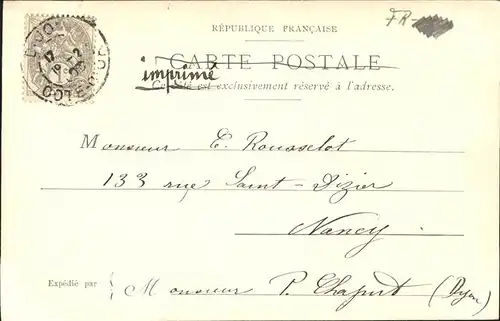 RÉPUBLIQUE FRANÇAISE
FR-
CARTE POSTALE
imprimé
Ce côté est exclusivement réservé à l'adresse.
DIJON
CÔTE-D'OR
Monsieur E. Rousselot
133 rue Saint-Dizier
Nancy
Expédié par Monsieur P. Chapuet (Dijon)